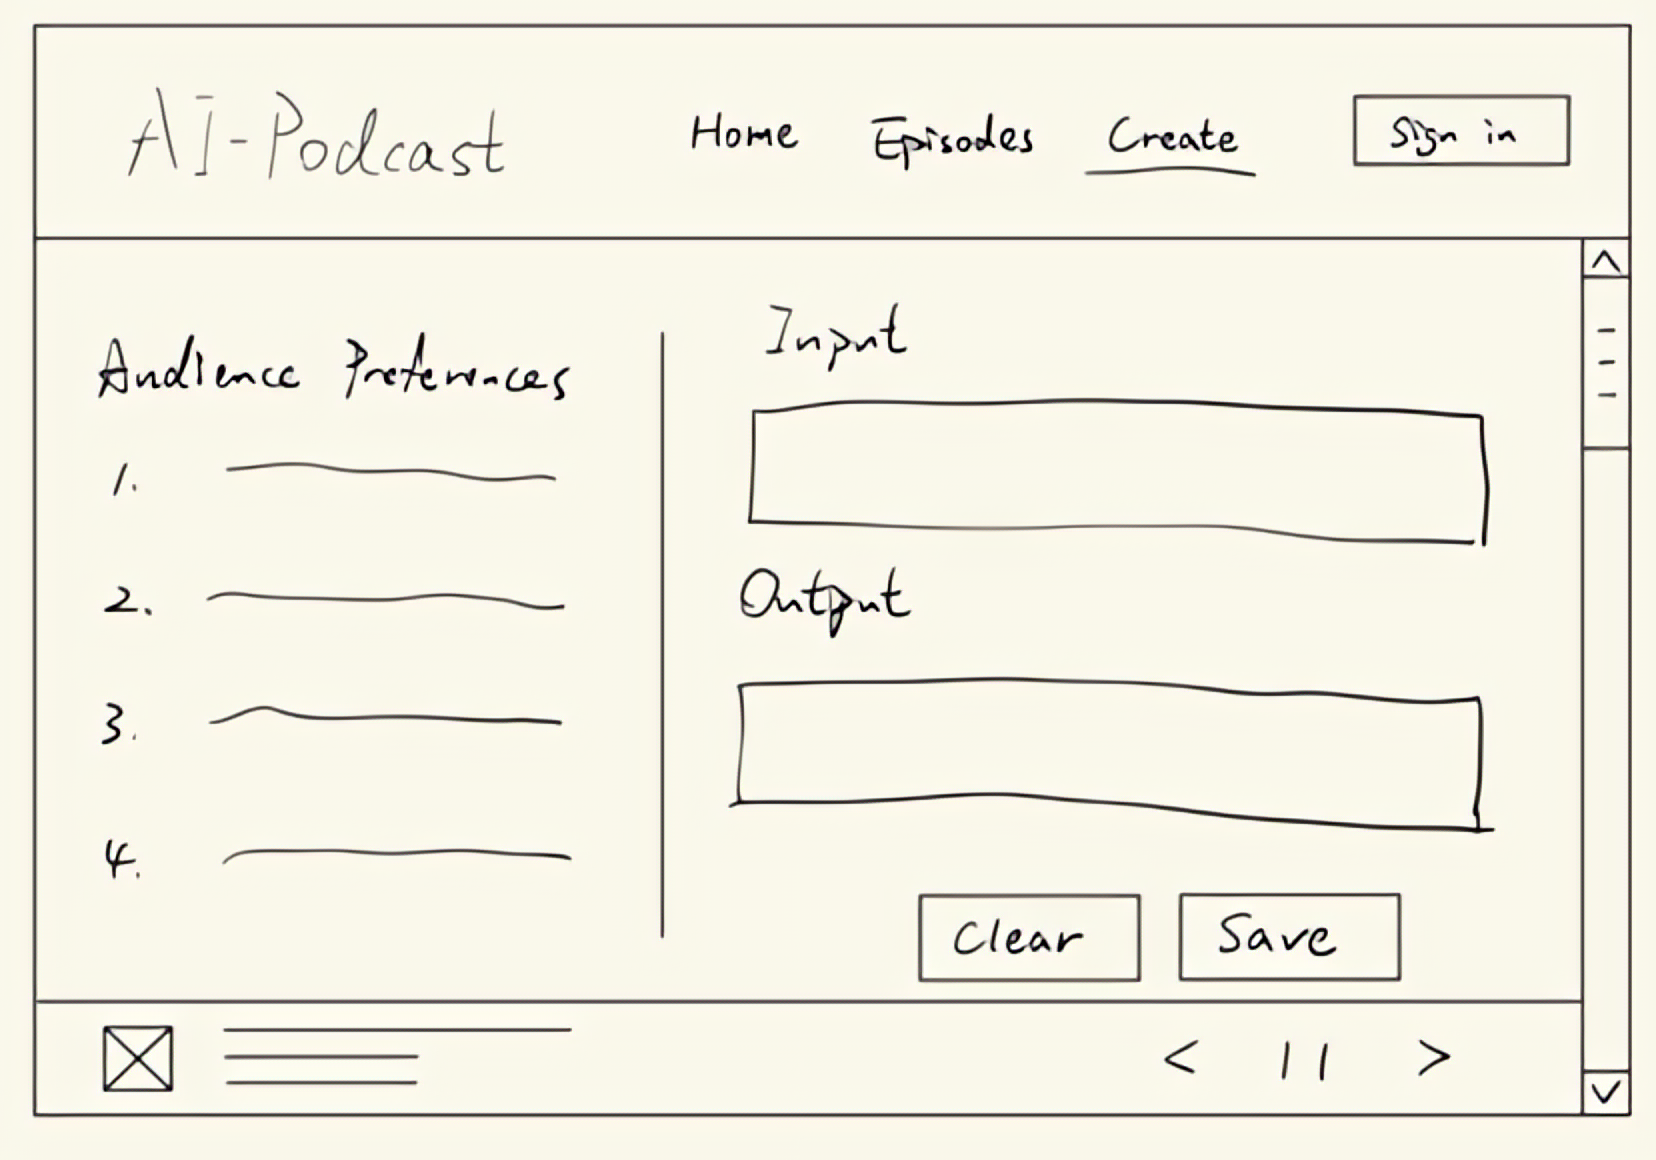 AI-Podcast Home Episodes Create Sign in
Audience Preferences
1.
2.
3.
4.
Input
Output
Clear Save
< || >